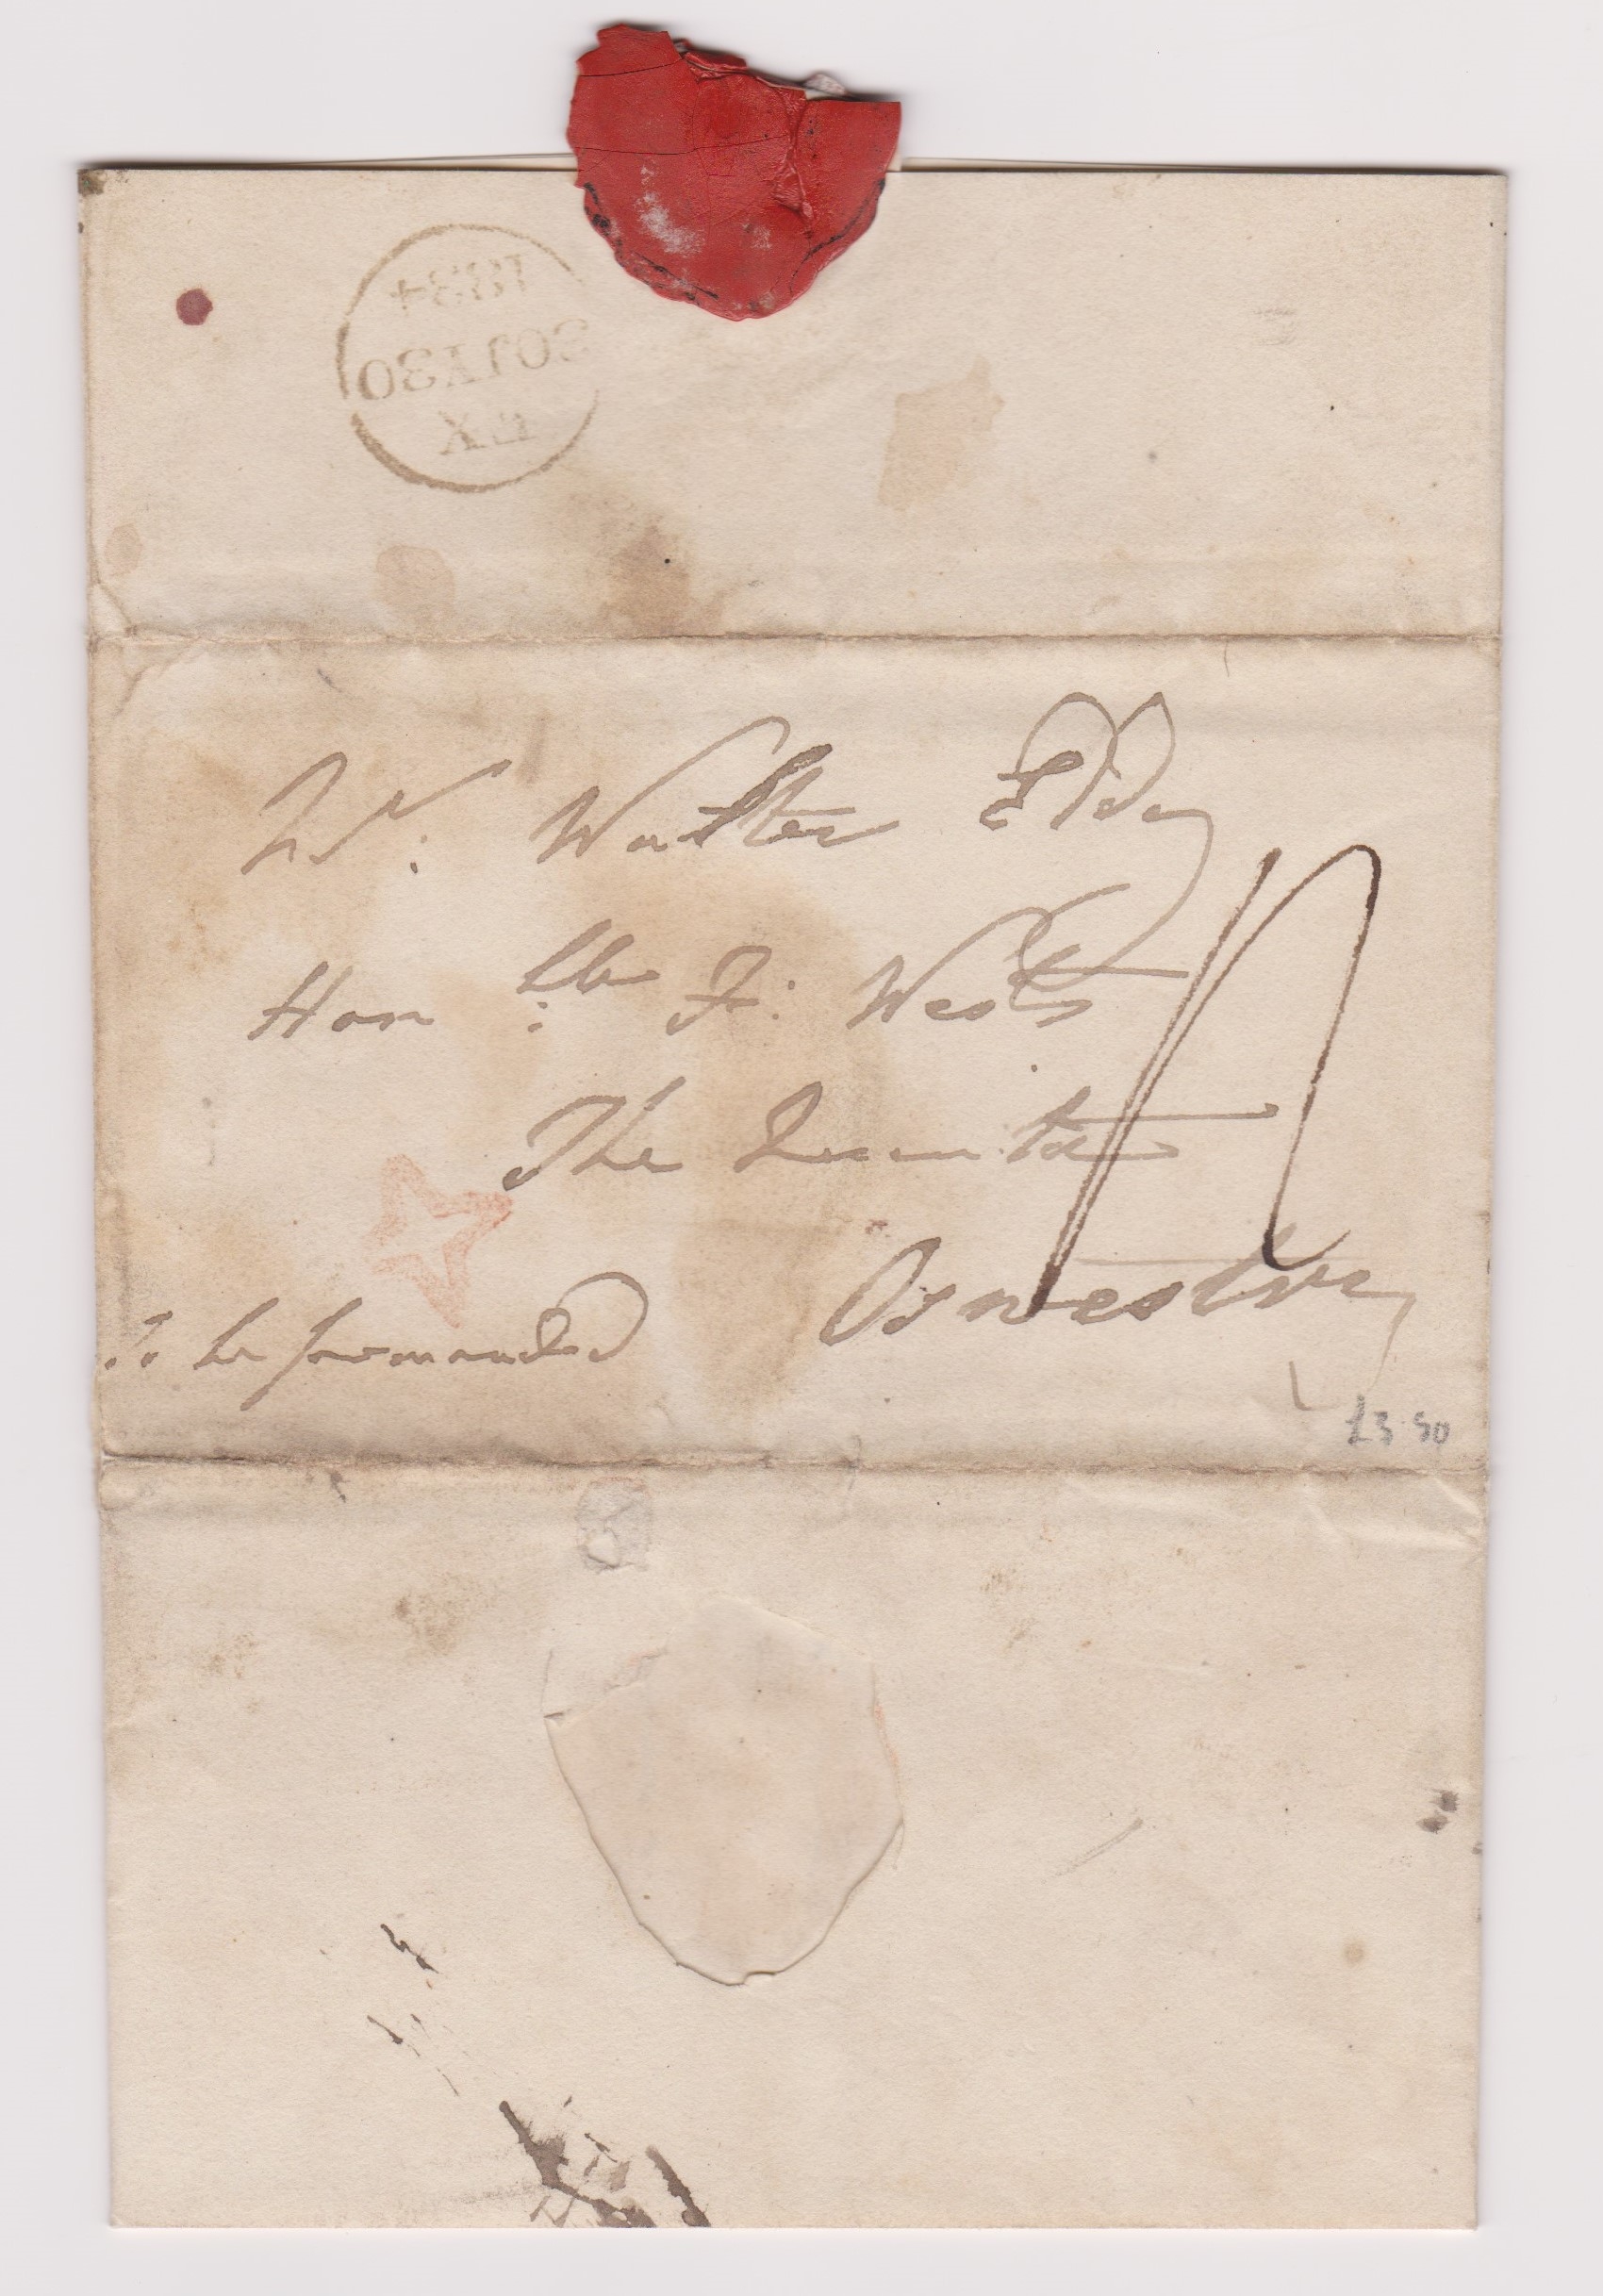 EX
30JY30
1834
Mr. Walter Eddy
Honble. F: Wests
The Quinta
Oswestry
To be forwarded
£3.50